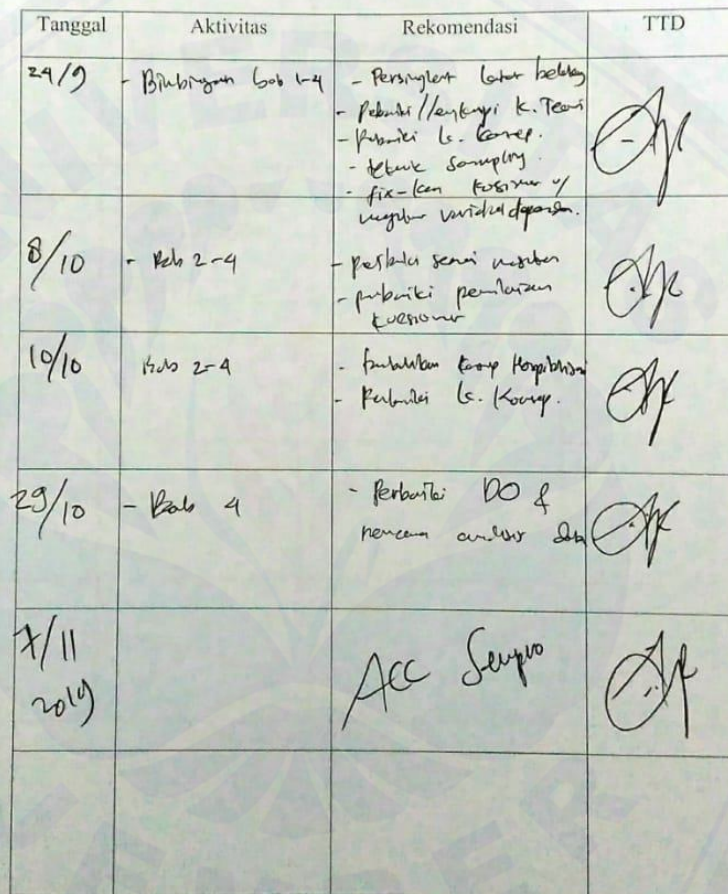 Tanggal Aktivitas Rekomendasi TTD
24/9 - Bimbingan bab 1-4 - Persingkat latar belakang
- Perbaiki / lengkapi K. Teori
- Perbaiki k. konsep.
- teknik sampling.
- fix-kan kuesioner u/
variabel dependen.
8/10 - Bab 2-4 - perbaiki sesuai
- perbaiki penilaian
kuesioner
10/10 Bab 2-4 - konsep
- Perbaiki k. Konsep.
29/10 - Bab 4 - Perbaiki DO &
rencana analisis data
7/11
2019 ACC Sempro